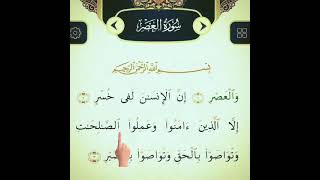 سُورَةُ العَصْرِ
بِسْمِ اللَّهِ الرَّحْمَٰنِ الرَّحِيمِ
وَٱلْعَصْرِ ۝١ إِنَّ ٱلْإِنسَٰنَ لَفِى خُسْرٍ ۝٢
إِلَّا ٱلَّذِينَ ءَامَنُوا۟ وَعَمِلُوا۟ ٱلصَّٰلِحَٰتِ
وَتَوَاصَوْا۟ بِٱلْحَقِّ وَتَوَاصَوْا۟ بِٱلصَّبْرِ ۝٣